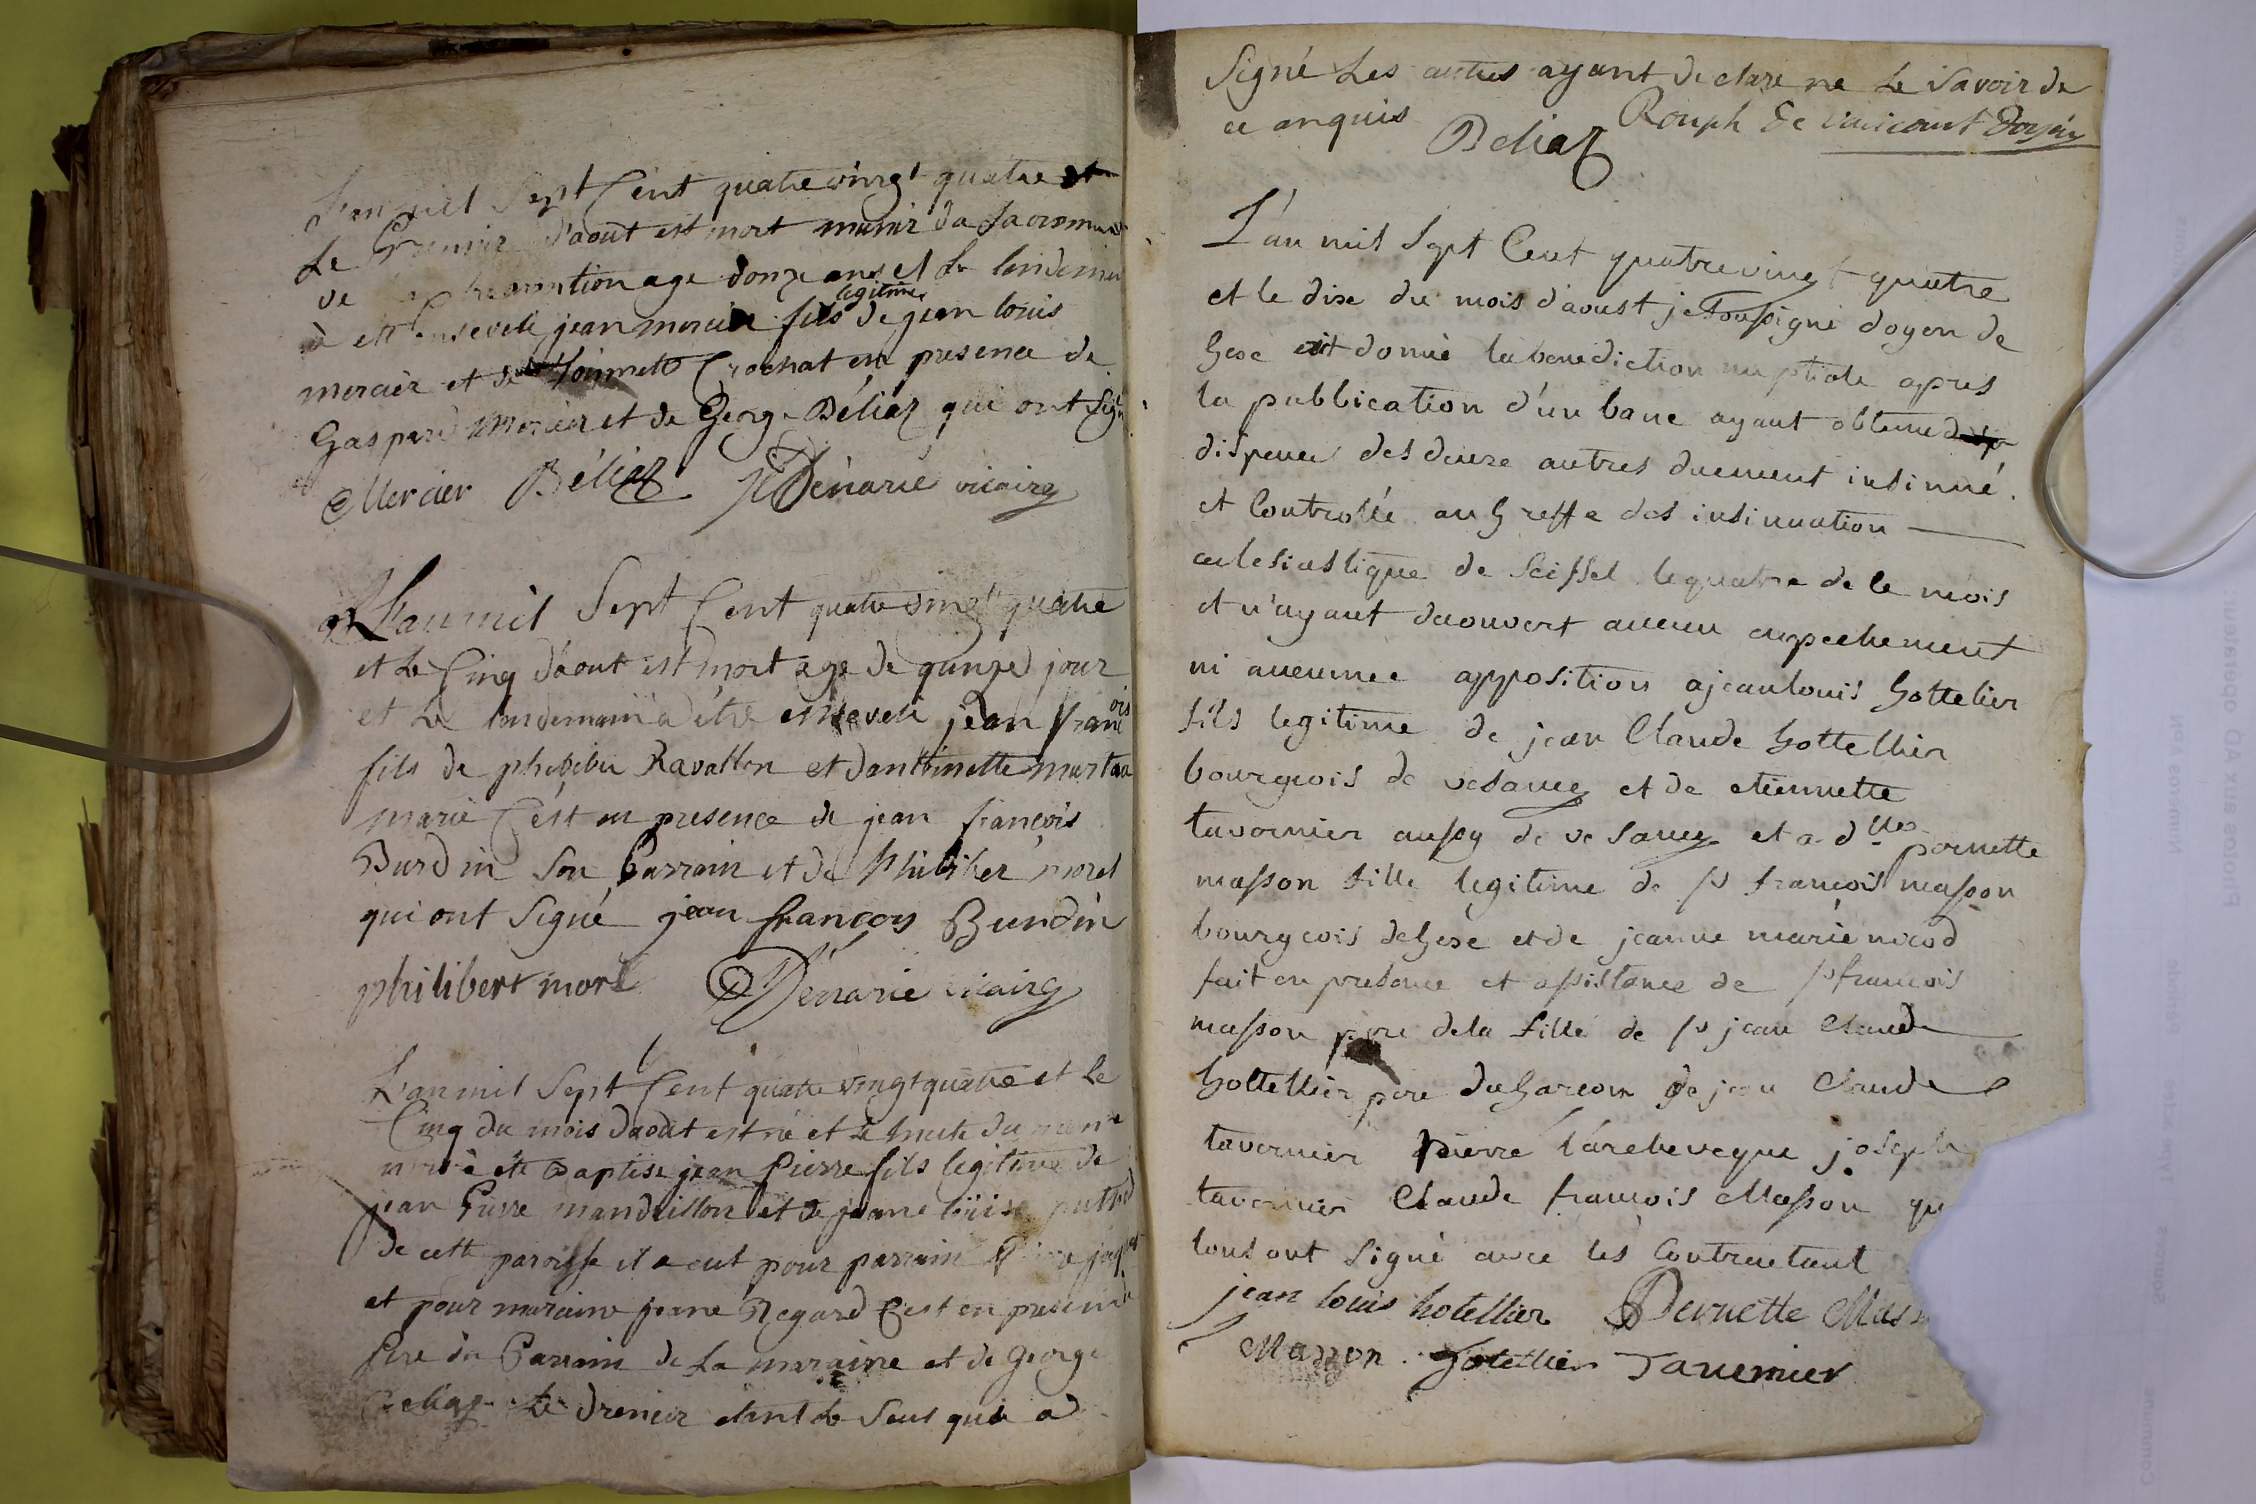 L'an mil Sept Cent quatre vingt quatre et
Le Premier d'aout est mort munir da Sacremen
de age donze ans et Le lendemain
à ett enseveli jean mercier fils legitime de jean louis
mercier et de toinette Crochat en presence de
Gaspard Mercier et de Georg Béliaz qui ont Signé
Mercier Béliaz Dénarié vicaire
L'an mil Sept Cent quatre vingt quatre
et Le Cinq d'aout est mort age de qunze jour
et Le lendemain a étré enseveli jean francois
fils de philiber Ravallon et dantoinette
marié C'est en presence de jean françois
Burdin Son Parrain et de Philiber morel
qui ont Signé jean françois Burdin
philibert morel Dénarié vicaire
L'an mil Sept Cent quatre vingt quatre et Le
Cinq du mois daout est né et Le huite du meme
mois à eté Baptisé jean Pierre fils legitime de
jean Pierre mandrillon et de jeane loüise
de cette paroisse il a eut pour parrain
et pour maraine jeane Regard C'est en presence
Pere du Parrain de La maraine et de George
Beliaz Le drenier etant Le Seul qui a
Signé Les autres ayant declare ne Le Savoir de
ce enquis Rouph de varicourt Doyen
Beliaz
L'an mil Sept Cent quatrevingt quatre
et le dix du mois d'aoust je Soussigné doyen de
Gex ait donné la benediction nuptiale apres
la pubblication d'un banc ayant obtenue
dispence des deuxe autres duement insinué
et Controllé au Greffe des insinuation
eclesiastique de Seissel le quatre de le mois
et n'ayant decouvert aucun enpechement
ni aucunne apposition a jean louis hottelier
fils legitime de jean Claude hottellier
bourgeois de vesancy et de etiennette
tavernier aussy de vesancy et a dlles pernette
masson fille legitime de sr francois masson
bourgeois de Gexe et de jeanne marie nicod
fait en presence et assistance de sr francois
masson pere de la fille de sr jean Claude
hottellier pere du Garcon de jean Claude
tavernier pierre l'archeveque joseph
tavernier Claude francois Masson qu
tous ont Signé avec les Contractant
jean louis hotellier Pernette Mass
Masson hotellier Tavernier